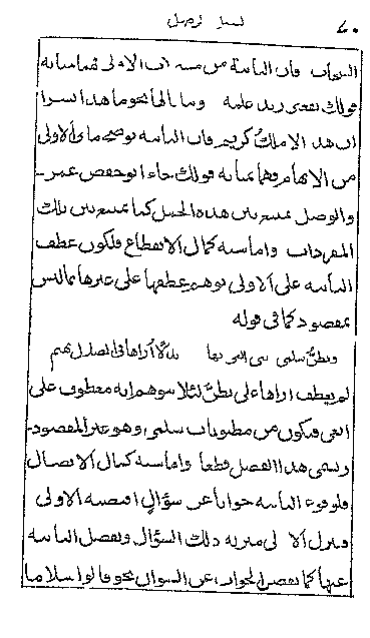 الفصل والوصل
البيان فان الثانية من الاولى بمثابة
قولك نفعنى زيد علمه وما الثالث نحو ما هذا بشرا
ان هذا الا ملك كريم فان الثانية توضيح ما فى الاولى
من الابهام فهما بمثابة قولك جاء ابو حفص عمر
والوصل يمتنع بين هذه الجمل كما يمتنع بين تلك
المفردات واما شبه كمال الانقطاع فلكون عطف
الثانية على الاولى يوهم بعطفها على غيرها مما ليس
بمقصود كما فى قوله
وتظن سلمى اننى ابغى بها بدلا اراها فى الضلال تهيم
لم يعطف اراها على تظن لئلا يتوهم انه معطوف على
ابغى فيكون من مظنونات سلمى وهو غير المقصود
ويسمى هذا الفصل قطعا واما شبه كمال الاتصال
فلوقوع الثانية جوابا عن سؤال اقتضته الاولى
فتنزل الاولى منزلة ذلك السؤال وتفصل الثانية
عنها كما يفصل الجواب عن السوال نحو قالوا سلاما